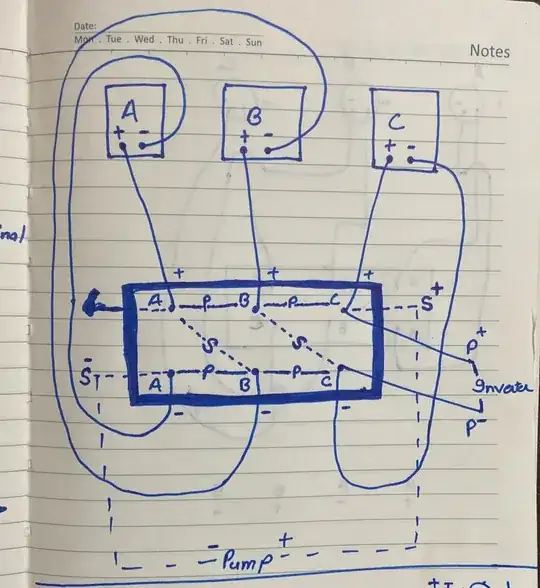 Date:
Mon . Tue . Wed . Thu . Fri . Sat . Sun
Notes
A B C
+ - + - + -
+ + +
A P B P C S+
S S P+
S- A P B P C Inverter
- - - P-
- Pump +